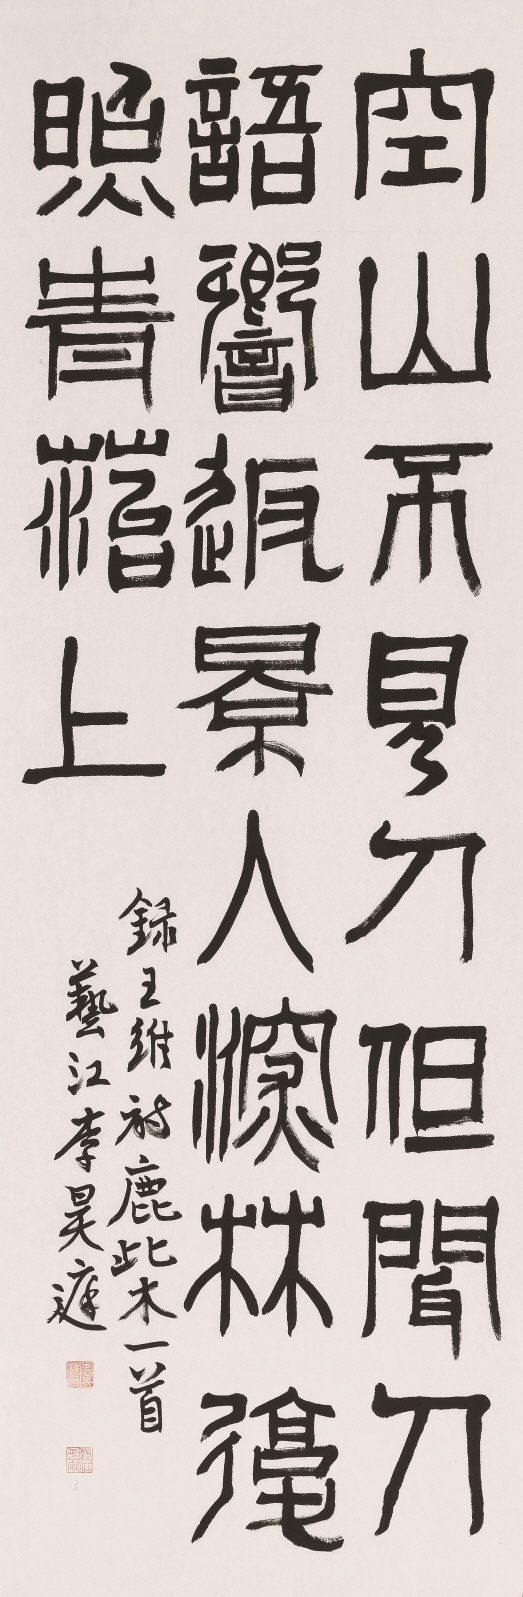 空山不見人但聞人
語響返景入深林復
照青苔上
録王維詩鹿柴一首
藝江李昊